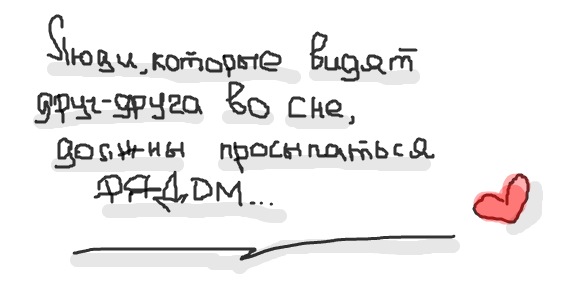 Люди, которые видят
друг-друга во сне,
должны просыпаться
РЯДОМ...